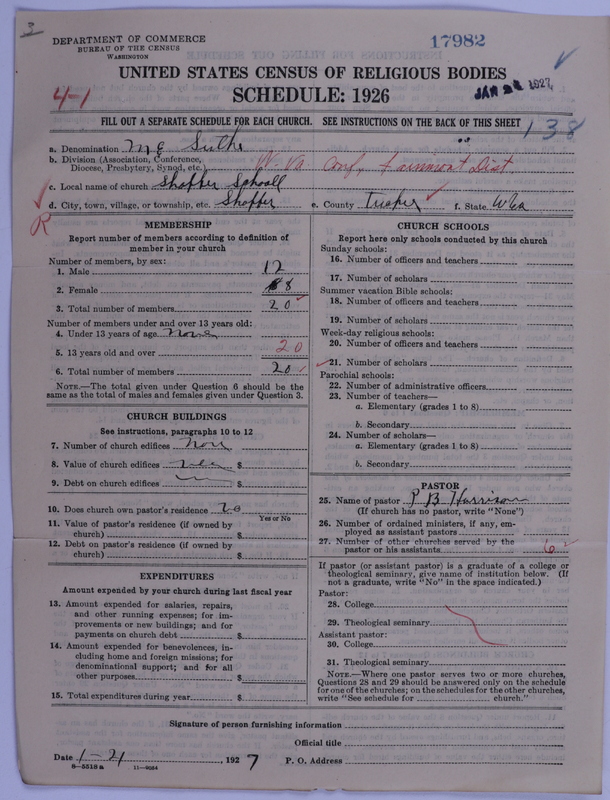 3
DEPARTMENT OF COMMERCE
BUREAU OF THE CENSUS
WASHINGTON
17982
UNITED STATES CENSUS OF RELIGIOUS BODIES
SCHEDULE: 1926
4-1
JAN 1927
FILL OUT A SEPARATE SCHEDULE FOR EACH CHURCH. SEE INSTRUCTIONS ON THE BACK OF THIS SHEET
138
a. Denomination M E South
b. Division (Association, Conference, Diocese, Presbytery, Synod, etc.) W. Va Conf, Fairmont Dist.
c. Local name of church Shaffer
d. City, town, village, or township, etc. Shaffer e. County Tucker f. State W Va
R
MEMBERSHIP
Report number of members according to definition of member in your church
Number of members, by sex:
1. Male 12
2. Female 8
3. Total number of members 20
Number of members under and over 13 years old:
4. Under 13 years of age None
5. 13 years old and over 20
6. Total number of members 20
NOTE.—The total given under Question 6 should be the same as the total of males and females given under Question 3.
CHURCH BUILDINGS
See instructions, paragraphs 10 to 12
7. Number of church edifices None
8. Value of church edifices $
9. Debt on church edifices $
10. Does church own pastor's residence? no
Yes or No
11. Value of pastor's residence (if owned by church) $
12. Debt on pastor's residence (if owned by church) $
EXPENDITURES
Amount expended by your church during last fiscal year
13. Amount expended for salaries, repairs, and other running expenses; for improvements or new buildings; and for payments on church debt $
14. Amount expended for benevolences, including home and foreign missions; for denominational support; and for all other purposes $
15. Total expenditures during year $
CHURCH SCHOOLS
Report here only schools conducted by this church
Sunday schools:
16. Number of officers and teachers
17. Number of scholars
Summer vacation Bible schools:
18. Number of officers and teachers
19. Number of scholars
Week-day religious schools:
20. Number of officers and teachers
21. Number of scholars
Parochial schools:
22. Number of administrative officers
23. Number of teachers—
a. Elementary (grades 1 to 8)
b. Secondary
24. Number of scholars—
a. Elementary (grades 1 to 8)
b. Secondary
PASTOR
25. Name of pastor P B Harrison
(If church has no pastor, write "None")
26. Number of ordained ministers, if any, employed as assistant pastors
27. Number of other churches served by the pastor or his assistants 6
If pastor (or assistant pastor) is a graduate of a college or theological seminary, give name of institution below. (If not a graduate, write "No" in the space indicated.)
Pastor:
28. College
29. Theological seminary
Assistant pastor:
30. College
31. Theological seminary
NOTE.—Where one pastor serves two or more churches, Questions 28 and 29 should be answered only on the schedule for one of the churches; on the schedules for the other churches, write "See schedule for church."
Signature of person furnishing information
Official title
Date 1-21, 1927 P. O. Address
8-5518a 11-9064